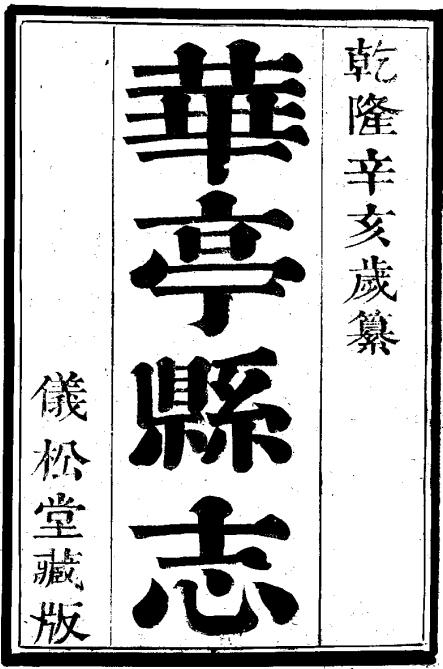 乾隆辛亥歲纂
華亭縣志
儀松堂藏版